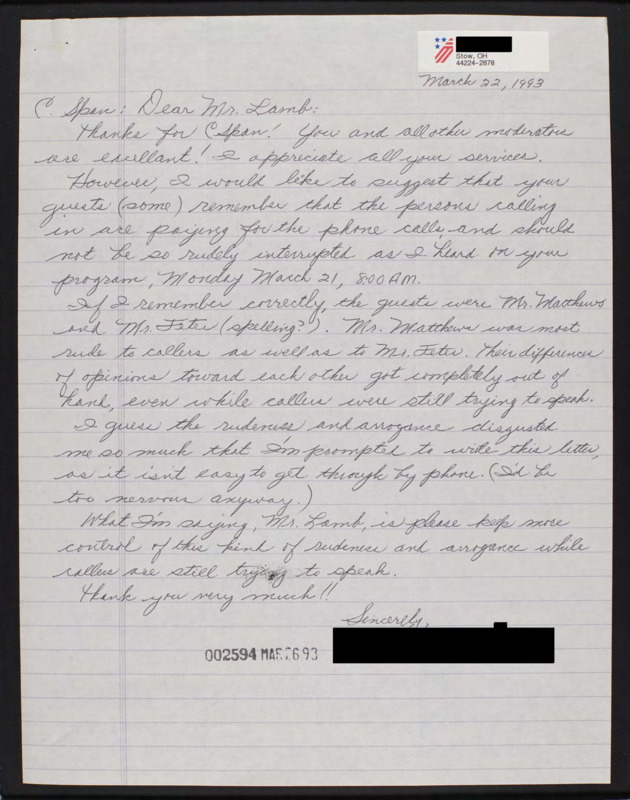 Stow, OH
44224-2878
March 22, 1993
C. Span: Dear Mr. Lamb:
Thanks for CSpan! You and all other moderators
are excellant! I appriciate all your services.
However, I would like to suggest that your
guests (some) remember that the persons calling
in are paying for the phone calls, and should
not be so rudely interrupted as I heard on your
program, Monday March 21, 8:00 A.M.
If I remember correctly, the guests were Mr. Matthews
and Mr. Fater (spelling?). Mr. Matthews was most
rude to callers as well as to Mr. Fater. Their differences
of opinions toward each other got completely out of
hand, even while callers were still trying to speak.
I guess the rudeness and arrogance disgusted
me so much that I'm prompted to write this letter,
as it isn't easy to get through by phone. (I'd be
too nervous anyway.)
What I'm saying, Mr. Lamb, is please keep more
control of this kind of rudeness and arrogance while
callers are still trying to speak.
Thank you very much!!
Sincerely,
002594 MAR 26 93